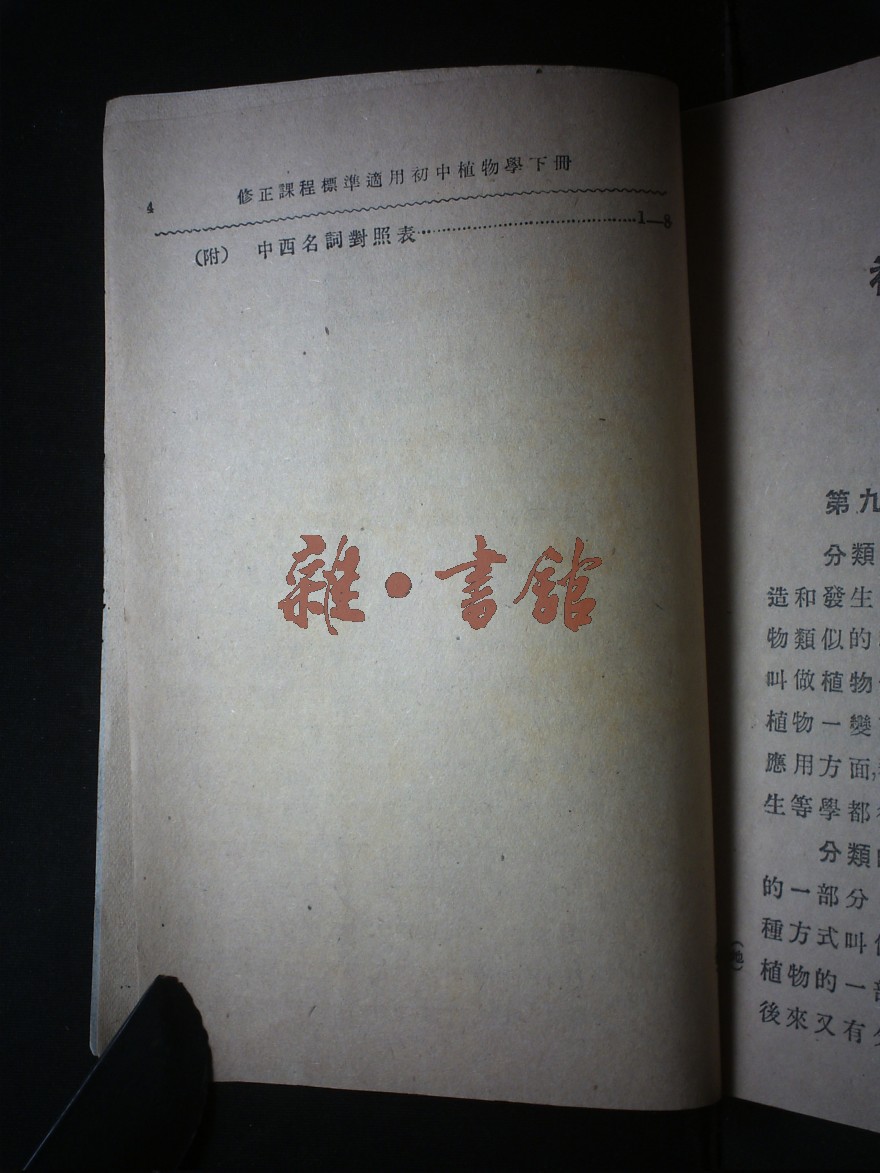 4 修正課程標準適用初中植物學下冊
(附) 中西名詞對照表……………………………1—8
雜·書館
第九
分類
造和發生
物類似的
叫做植物
植物一變
應用方面,
生等學都
分類
的一部分
種方式叫
植物的一
後來又有